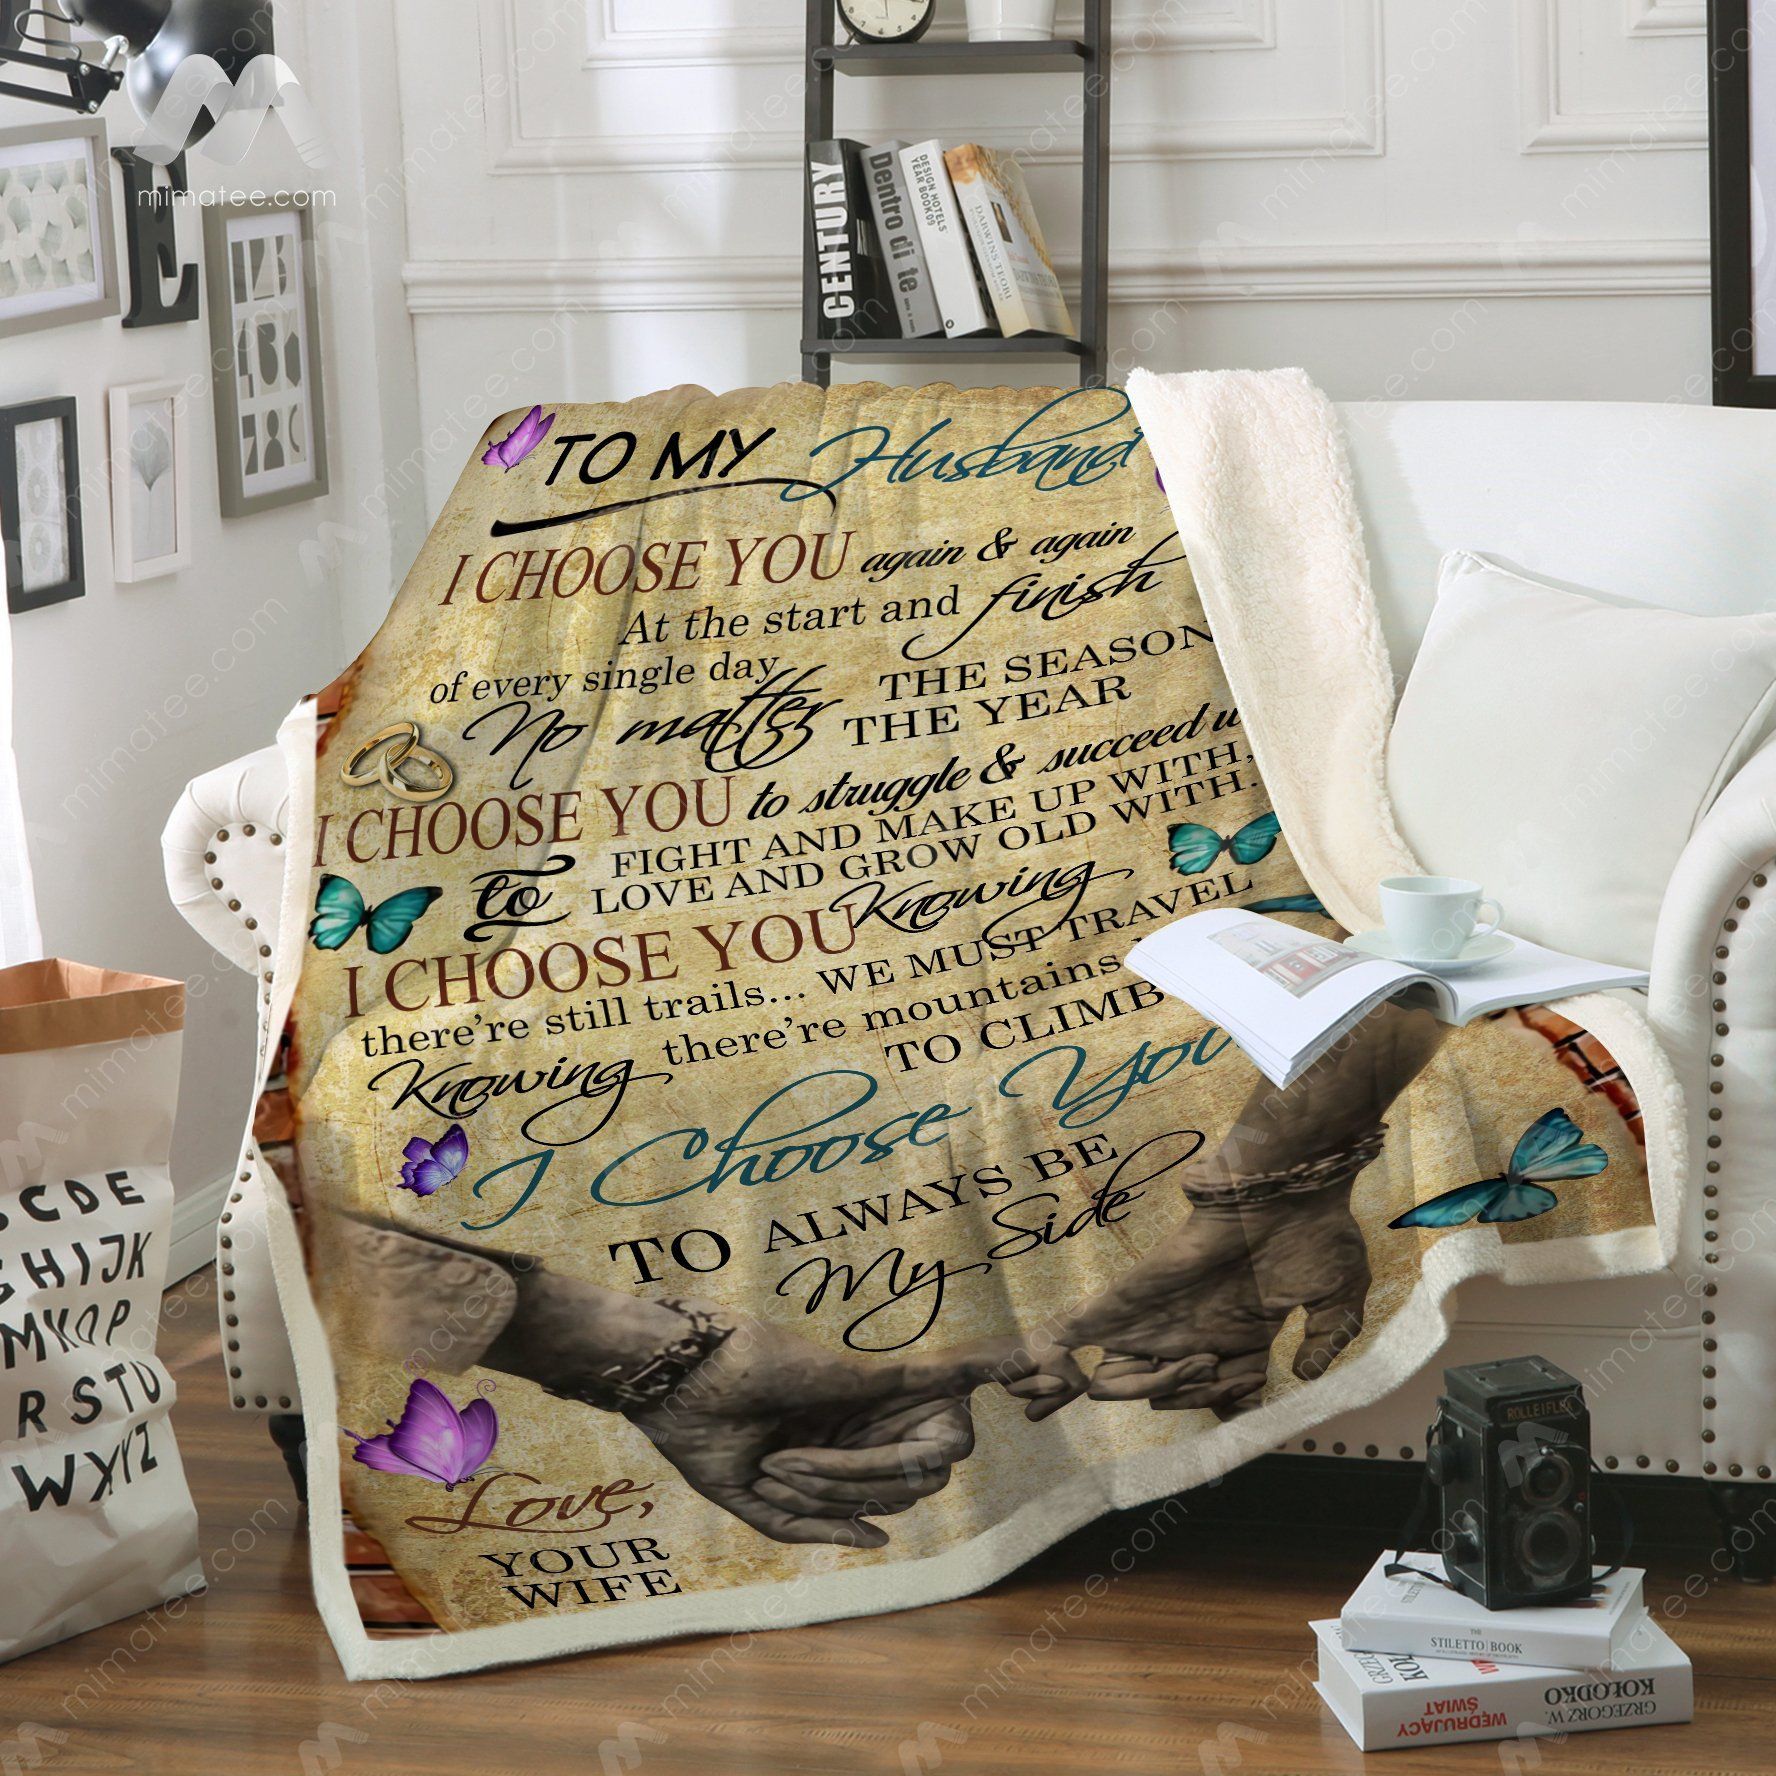 mimatee.com
E
CENTURY
Dentro di te
DESIGN HOTELS
YEAR BOOK 09
TO MY Husband
I CHOOSE YOU again & again
At the start and finish
of every single day
No matter THE SEASON
THE YEAR
I CHOOSE YOU to struggle & succeed
to FIGHT AND MAKE UP WITH,
LOVE AND GROW OLD WITH.
I CHOOSE YOU Knowing
there're still trails... WE MUST TRAVEL
Knowing there're mountains
TO CLIMB
I Choose You
TO ALWAYS BE
My Side
Love,
YOUR
WIFE
CDE
GHIJK
MNOP
RSTU
WXYZ
ROLLEIFLEX
THE
STILETTO BOOK
GRZEGORZ W.
KOŁODKO
WĘDRUJĄCY
ŚWIAT